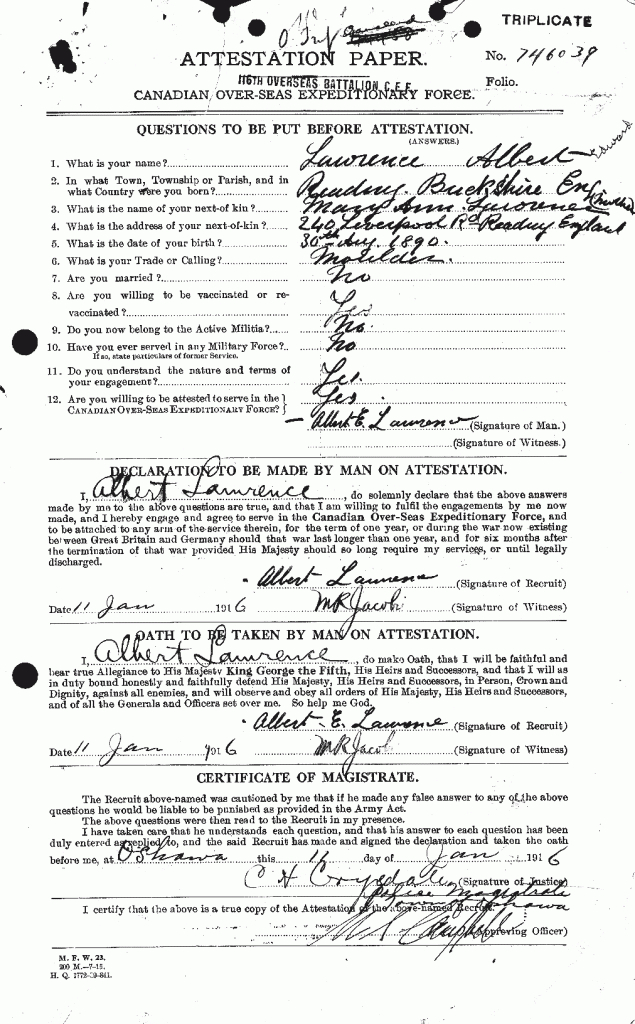 TRIPLICATE
ATTESTATION PAPER.
No. 746039
116TH OVERSEAS BATTALION C.E.F.
Folio.
CANADIAN OVER-SEAS EXPEDITIONARY FORCE.
QUESTIONS TO BE PUT BEFORE ATTESTATION.
(ANSWERS.)
1. What is your name? Lawrence Albert Edward
2. In what Town, Township or Parish, and in what Country were you born? Reading Buckshire Eng
3. What is the name of your next-of kin? Mary Ann Lawrence (Mother)
4. What is the address of your next-of-kin? 240 Liverpool Rd Reading England
5. What is the date of your birth? 30th Aug. 1890.
6. What is your Trade or Calling? Moulder.
7. Are you married? No
8. Are you willing to be vaccinated or re-
vaccinated? Yes
9. Do you now belong to the Active Militia? No.
10. Have you ever served in any Military Force? No
If so, state particulars of former Service.
11. Do you understand the nature and terms of
your engagement? Yes.
12. Are you willing to be attested to serve in the
CANADIAN OVER-SEAS EXPEDITIONARY FORCE? Yes.
Albert E. Lawrence (Signature of Man.)
(Signature of Witness.)
DECLARATION TO BE MADE BY MAN ON ATTESTATION.
I, Albert Lawrence, do solemnly declare that the above answers
made by me to the above questions are true, and that I am willing to fulfil the engagements by me now
made, and I hereby engage and agree to serve in the Canadian Over-Seas Expeditionary Force, and
to be attached to any arm of the service therein, for the term of one year, or during the war now existing
between Great Britain and Germany should that war last longer than one year, and for six months after
the termination of that war provided His Majesty should so long require my services, or until legally
discharged.
Albert Lawrence (Signature of Recruit)
Date 11 Jan 1916 M R Jacob (Signature of Witness)
OATH TO BE TAKEN BY MAN ON ATTESTATION.
I, Albert Lawrence, do make Oath, that I will be faithful and
bear true Allegiance to His Majesty King George the Fifth, His Heirs and Successors, and that I will as
in duty bound honestly and faithfully defend His Majesty, His Heirs and Successors, in Person, Crown and
Dignity, against all enemies, and will observe and obey all orders of His Majesty, His Heirs and Successors,
and of all the Generals and Officers set over me. So help me God.
Albert E. Lawrence (Signature of Recruit)
Date 11 Jan 1916 M R Jacob (Signature of Witness)
CERTIFICATE OF MAGISTRATE.
The Recruit above-named was cautioned by me that if he made any false answer to any of the above
questions he would be liable to be punished as provided in the Army Act.
The above questions were then read to the Recruit in my presence.
I have taken care that he understands each question, and that his answer to each question has been
duly entered as replied to, and the said Recruit has made and signed the declaration and taken the oath
before me, at Oshawa this 11 day of Jan 1916
(Signature of Justice)
Police Magistrate
Oshawa
I certify that the above is a true copy of the Attestation of the above-named Recruit.
(Approving Officer)
M. F. W. 23.
200 M.-7-15.
H. Q. 1772-39-841.